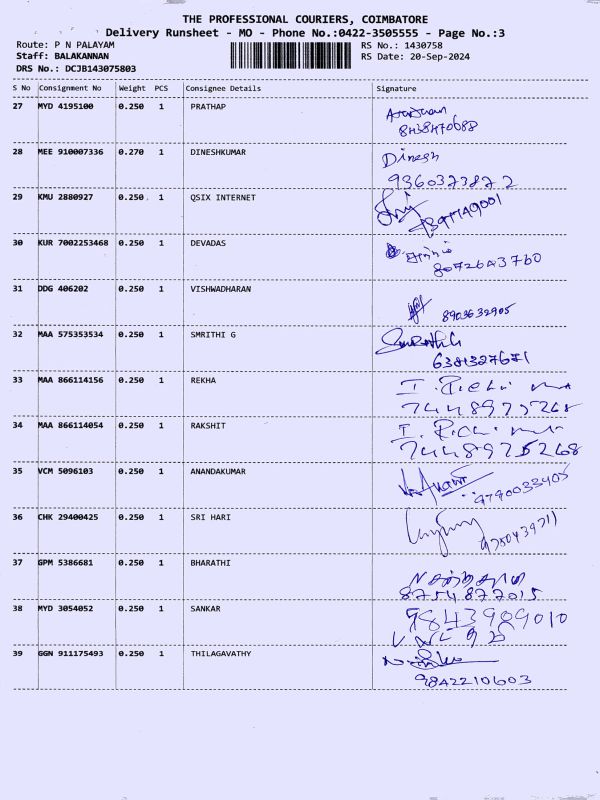 THE PROFESSIONAL COURIERS, COIMBATORE
Delivery Runsheet - MO - Phone No.:0422-3505555 - Page No.:3
Route: P N PALAYAM RS No.: 1430758
Staff: BALAKANNAN RS Date: 20-Sep-2024
DRS No.: DCJB143075803
S No Consignment No Weight PCS Consignee Details Signature
27 MYD 4195100 0.250 1 PRATHAP
8438470688
28 MEE 910007336 0.270 1 DINESHKUMAR Dinesh
9360373872
29 KMU 2880927 0.250 1 QSIX INTERNET
30 KUR 7002253468 0.250 1 DEVADAS
8072643760
31 DDG 406202 0.250 1 VISHWADHARAN
8903632905
32 MAA 575353534 0.250 1 SMRITHI G
6381327671
33 MAA 866114156 0.250 1 REKHA
7448975268
34 MAA 866114054 0.250 1 RAKSHIT
7448975268
35 VCM 5096103 0.250 1 ANANDAKUMAR
9790033405
36 CHK 29400425 0.250 1 SRI HARI
9750439711
37 GPM 5386681 0.250 1 BHARATHI
8754877015
38 MYD 3054052 0.250 1 SANKAR 9843989010
39 GGN 911175493 0.250 1 THILAGAVATHY
9842210603